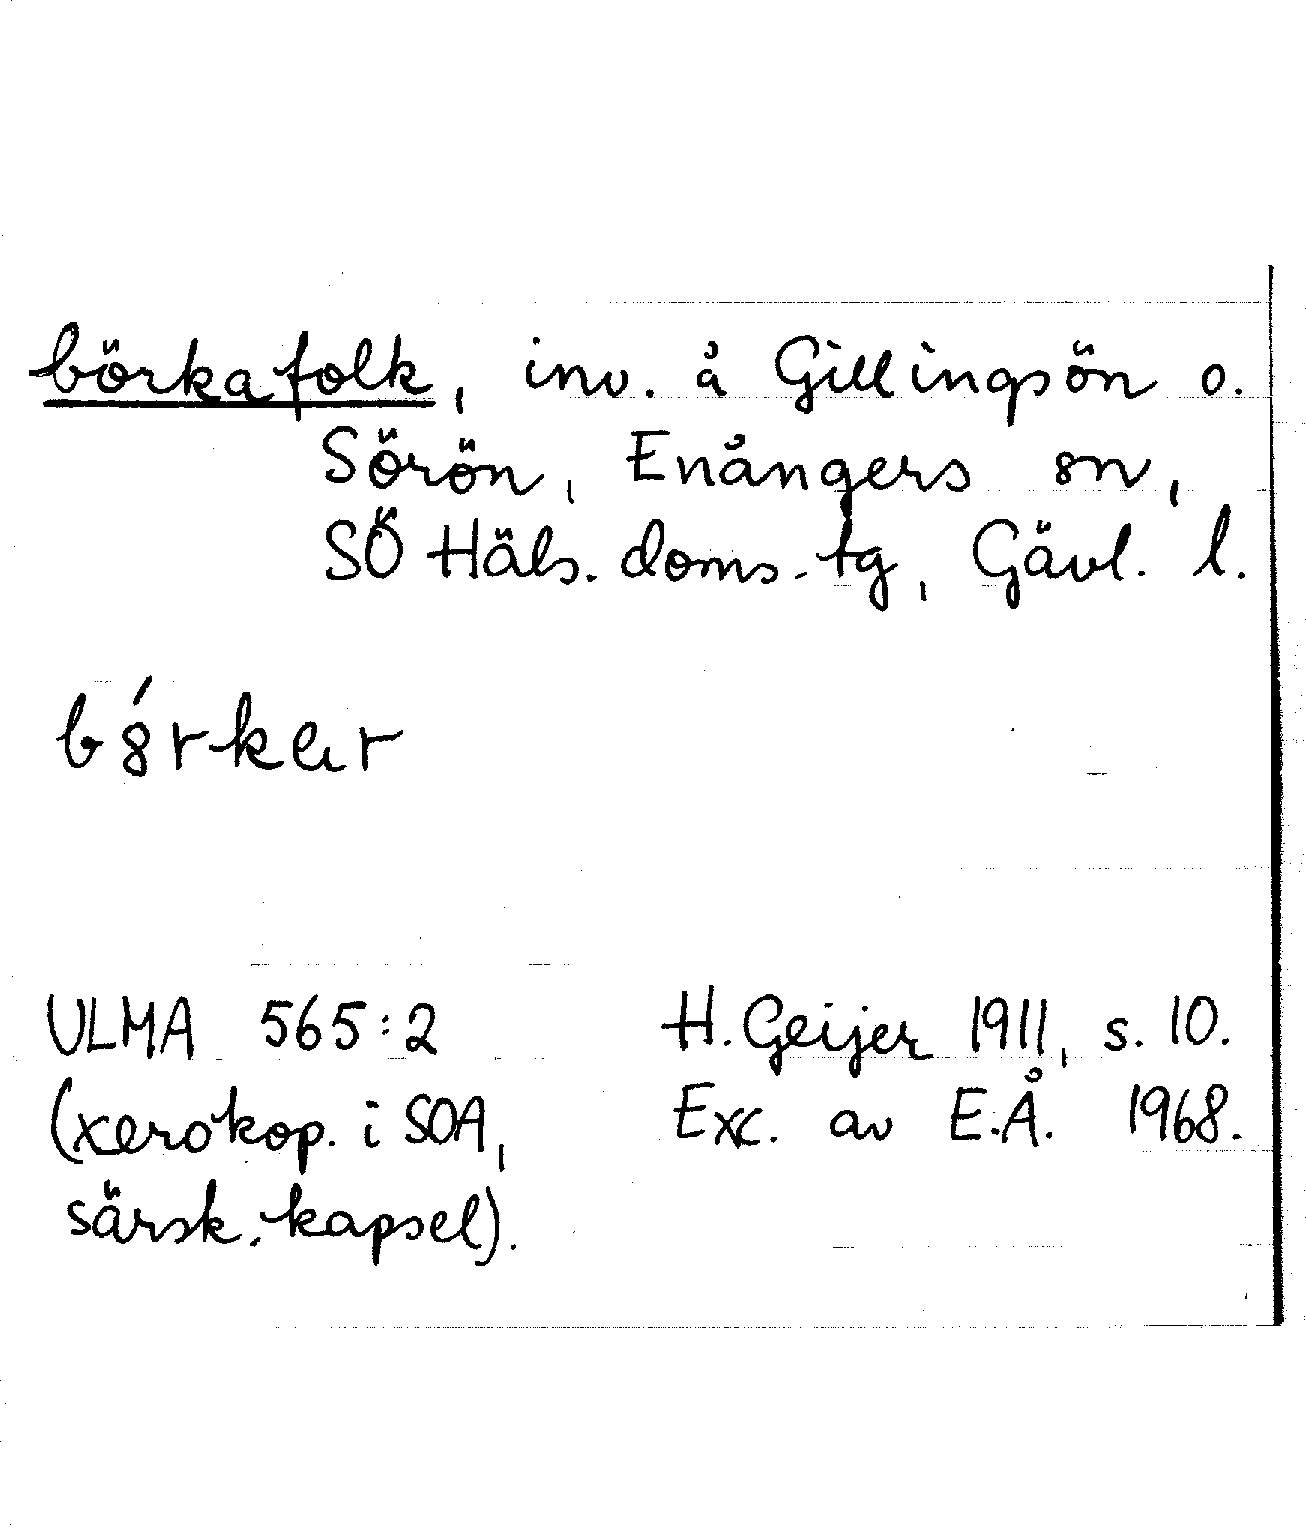 börkafolk, inv. å Gillingsön o.
Sörön, Enångers sn,
SÖ Häls. doms.-tg, Gävl. l.
ULMA 565:2 H. Geijer 1911, s. 10.
(xerokop. i SOA, Exc. av E.Å. 1968.
särsk. kapsel).